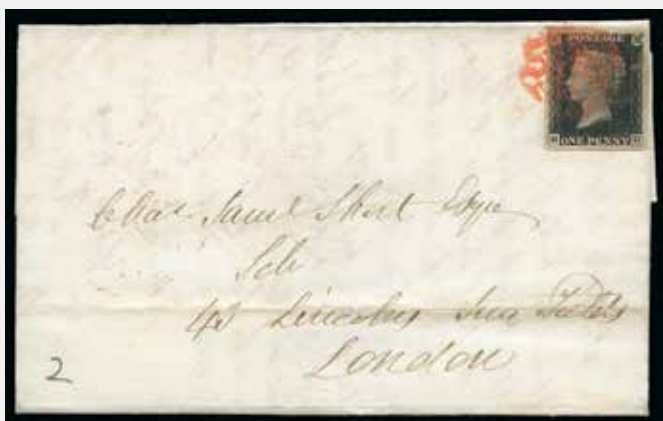 POSTAGE
ONE PENNY
Chas. Saml. Short Esqre
Solr
Lincolns Inn Fields
London
2